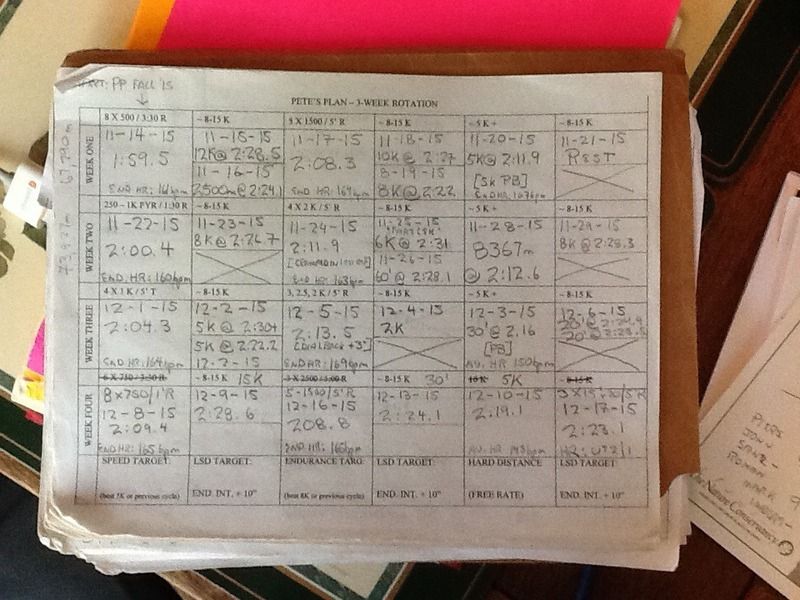 START: PP FALL '15
PETE'S PLAN – 3-WEEK ROTATION
67,290m
WEEK ONE
8 X 500 / 3:30 R
11-14-15
1:59.5
END HR: 161bpm
~ 8-15 K
11-15-15
12K@ 2:28.5
11-16-15
2500m@ 2:24.1
5 X 1500 / 5' R
11-17-15
2:08.3
END HR: 164bpm
~ 8-15 K
11-18-15
10K @ 2:27
8-19-15
8K@ 2:22
~5 K +
11-20-15
5K@ 2:11.9
[5k PB]
END HR: 167bpm
~ 8-15 K
11-21-15
REST
WEEK TWO
250 – 1K PYR / 1:30 R
11-22-15
2:00.4
END. HR: 160bpm
~ 8-15 K
11-23-15
8K@ 2:26.7
4 X 2 K / 5' R
11-24-15
2:11.9
END HR: 163bpm
~ 8-15 K
11-25-15
6K@ 2:31
11-26-15
60'@ 2:28.1
~5 K +
11-28-15
8367m
@ 2:12.6
~ 8-15 K
11-29-15
8K@ 2:28.3
WEEK THREE
4 X 1 K / 5' T
12-1-15
2:04.3
END HR: 164bpm
~ 8-15 K
12-2-15
5K @ 2:30.4
5K@ 2:22.2
12-2-15
3, 2.5, 2 K / 5' R
12-5-15
2:13.5
[DIAL BACK +3"]
END HR: 169bpm
~ 8-15 K
12-4-15
2K
~5 K +
12-3-15
30'@ 2.16
[PB]
AV. HR 150bpm
~ 8-15 K
12-6-15
20'@
20'@ 2:23.5
WEEK FOUR
6 X 750 / 3:30 R
8x750/1'R
12-8-15
2:09.4
END HR: 165bpm
~ 8-15 K 15K
12-9-15
2:28.6
3 X 2500 / 5:00 R
5-1500/5'R
12-16-15
208.8
END. HR: 165bpm
~ 8-15 K 30'
12-13-15
2:24.1
10 K 5K
12-10-15
2.19.1
8-15 K
12-17-15
2:23.1
SPEED TARGET:
(best 5K or previous cycle)
LSD TARGET:
END. INT. + 10"
ENDURANCE TARG:
(best 8K or previous cycle)
LSD TARGET:
END. INT. + 10"
HARD DISTANCE
(FREE RATE)
LSD TARGET:
END. INT. + 10"